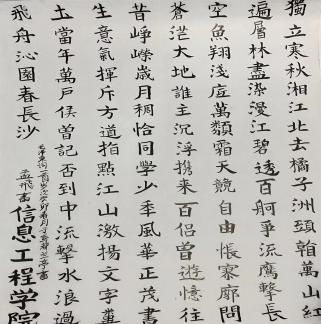 獨立寒秋湘江北去橘子洲頭萬山紅
遍層林盡染漫江碧透百舸爭流鷹擊長
空魚翔淺底萬類霜天競自由悵寥廓問
蒼茫大地誰主沉浮携来百侣曾遊憶往
昔崢嶸歲月稠恰同學少年風華正茂書
生意氣揮斥方遒指點江山激揚文字糞
土當年萬戶侯曾記否到中流擊水浪遏
飛舟沁園春長沙
孟飛書
信息工程学院